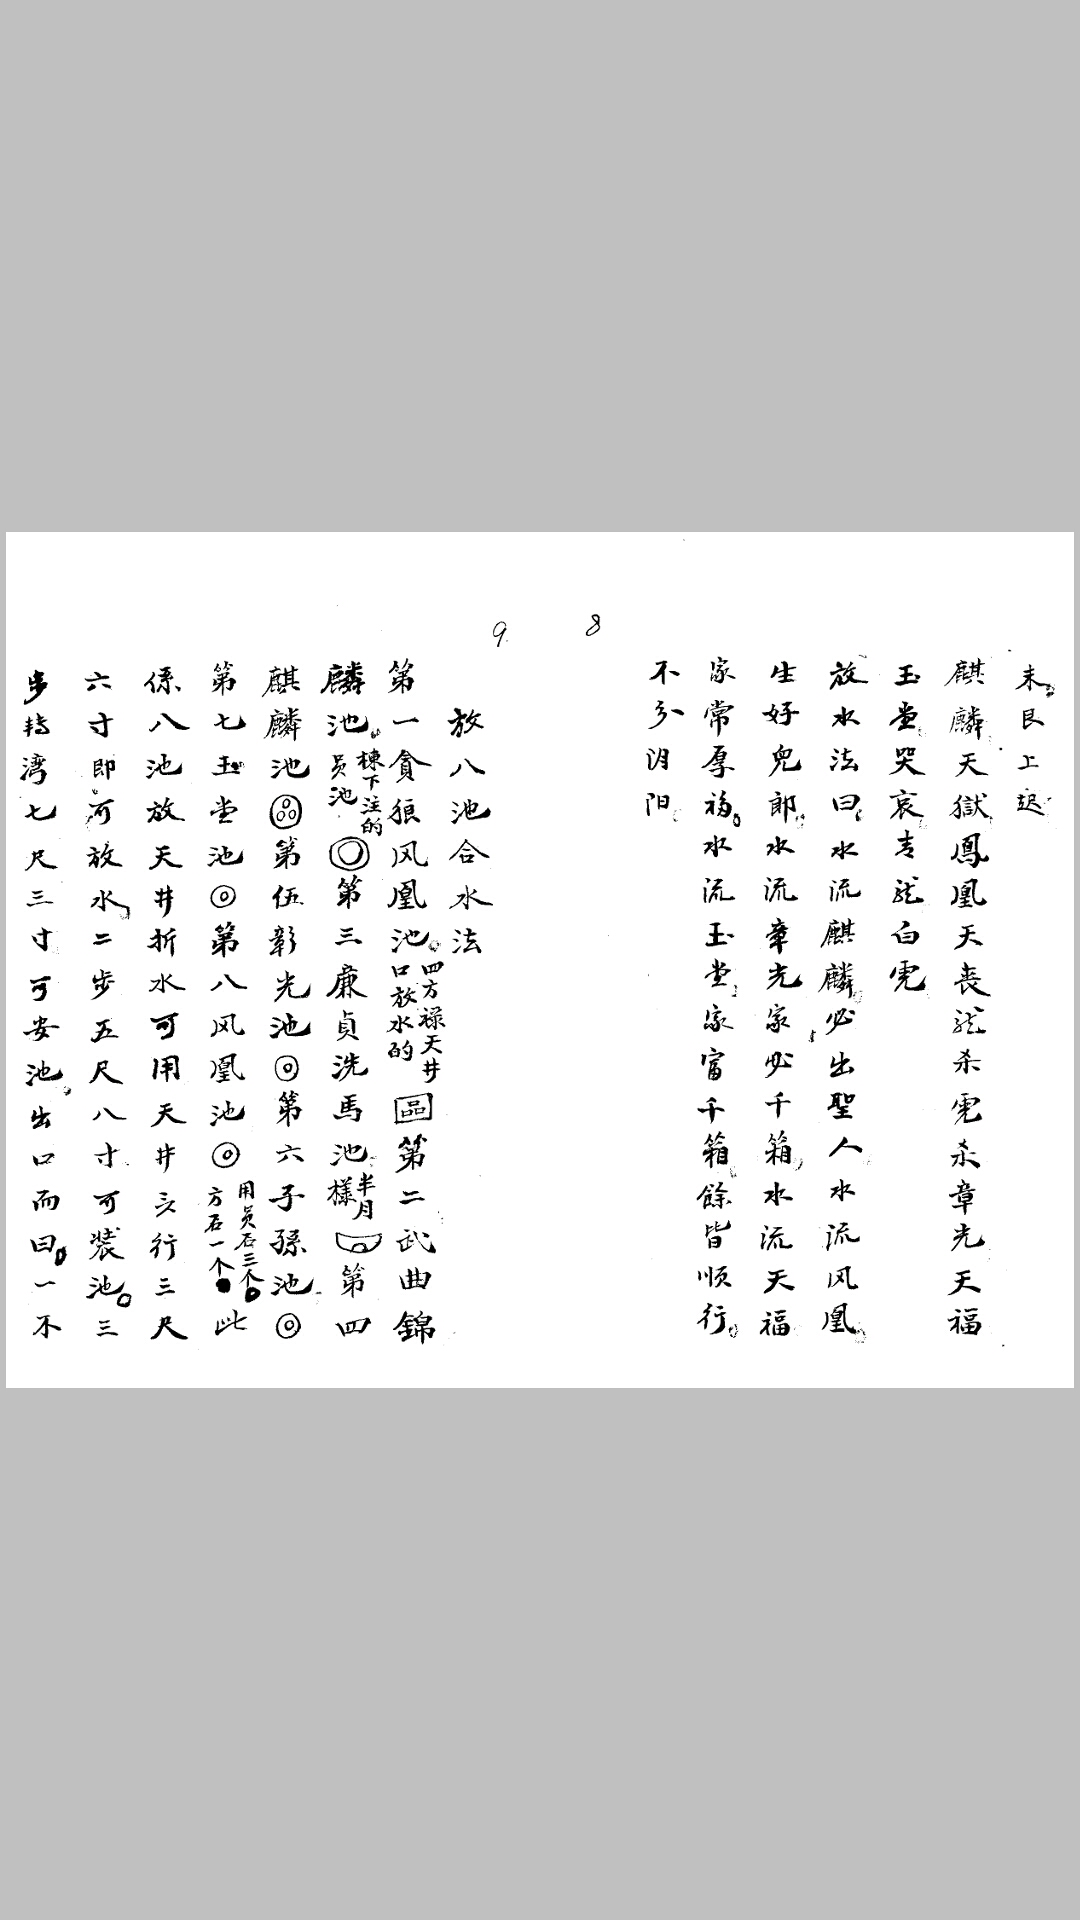 8
未艮上起
麒麟天獄鳳凰天丧龙杀虎杀章光天福
玉堂哭哀青龙白虎
放水法曰水流麒麟必出聖人水流风凰
生好兒郎水流章光家必千箱水流天福
家常厚福水流玉堂家富千箱餘皆顺行
不分阴阳
9
放八池合水法
第一貪狼风凰池四方禄天井口放水的第二武曲錦
麟池棟下注的员池第三廉貞洗馬池半月様第四
麒麟池第伍彰光池第六子孫池
第七玉堂池第八风凰池用员石三个方石一个此
係八池放天井折水可用天井行三尺
六寸即可放水二步五尺八寸可装池三
步转湾七尺三寸可安池出口而曰一不